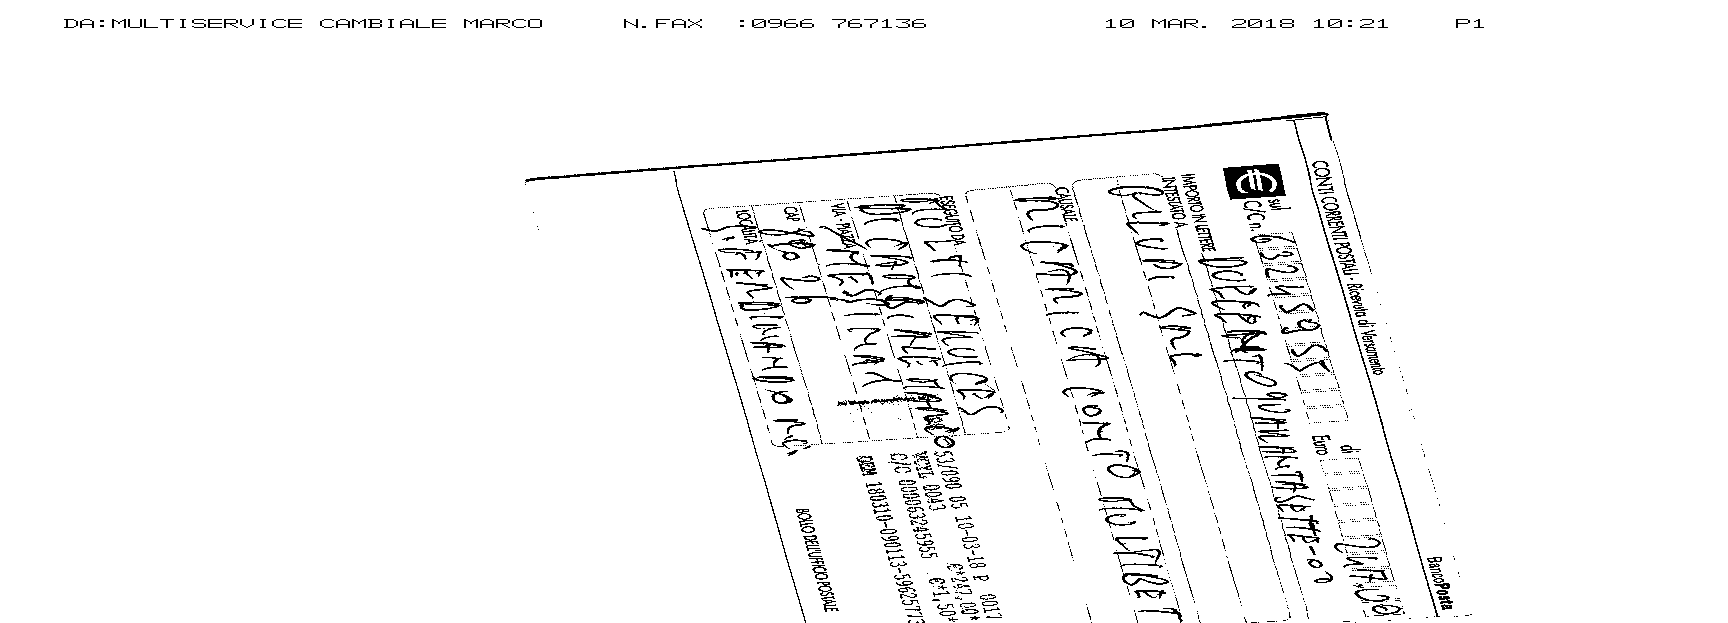 DA:MULTISERVICE CAMBIALE MARCO N.FAX :0966 767136 10 MAR. 2018 10:21 P1
CONTI CORRENTI POSTALI - Ricevuta di Versamento
BancoPosta
sul C/C n. 63245955 di Euro 247,00
IMPORTO IN LETTERE DUECENTOQUARANTASETTE-00
INTESTATO A
SRL
CAUSALE
RICARICA CONTO MULTIBET
ESEGUITO DA
MULTI SERVICES
DI CAMBIALE MARCO
VIA - PIAZZA
MESSINA
CAP 89026
LOCALITÀ
S. FERDINANDO RC
53/090 05 10-03-18 P 0017
VCYL 0043 €*247,00*
C/C 000063245955 €*1,50*
BOLLO DELL'UFFICIO POSTALE